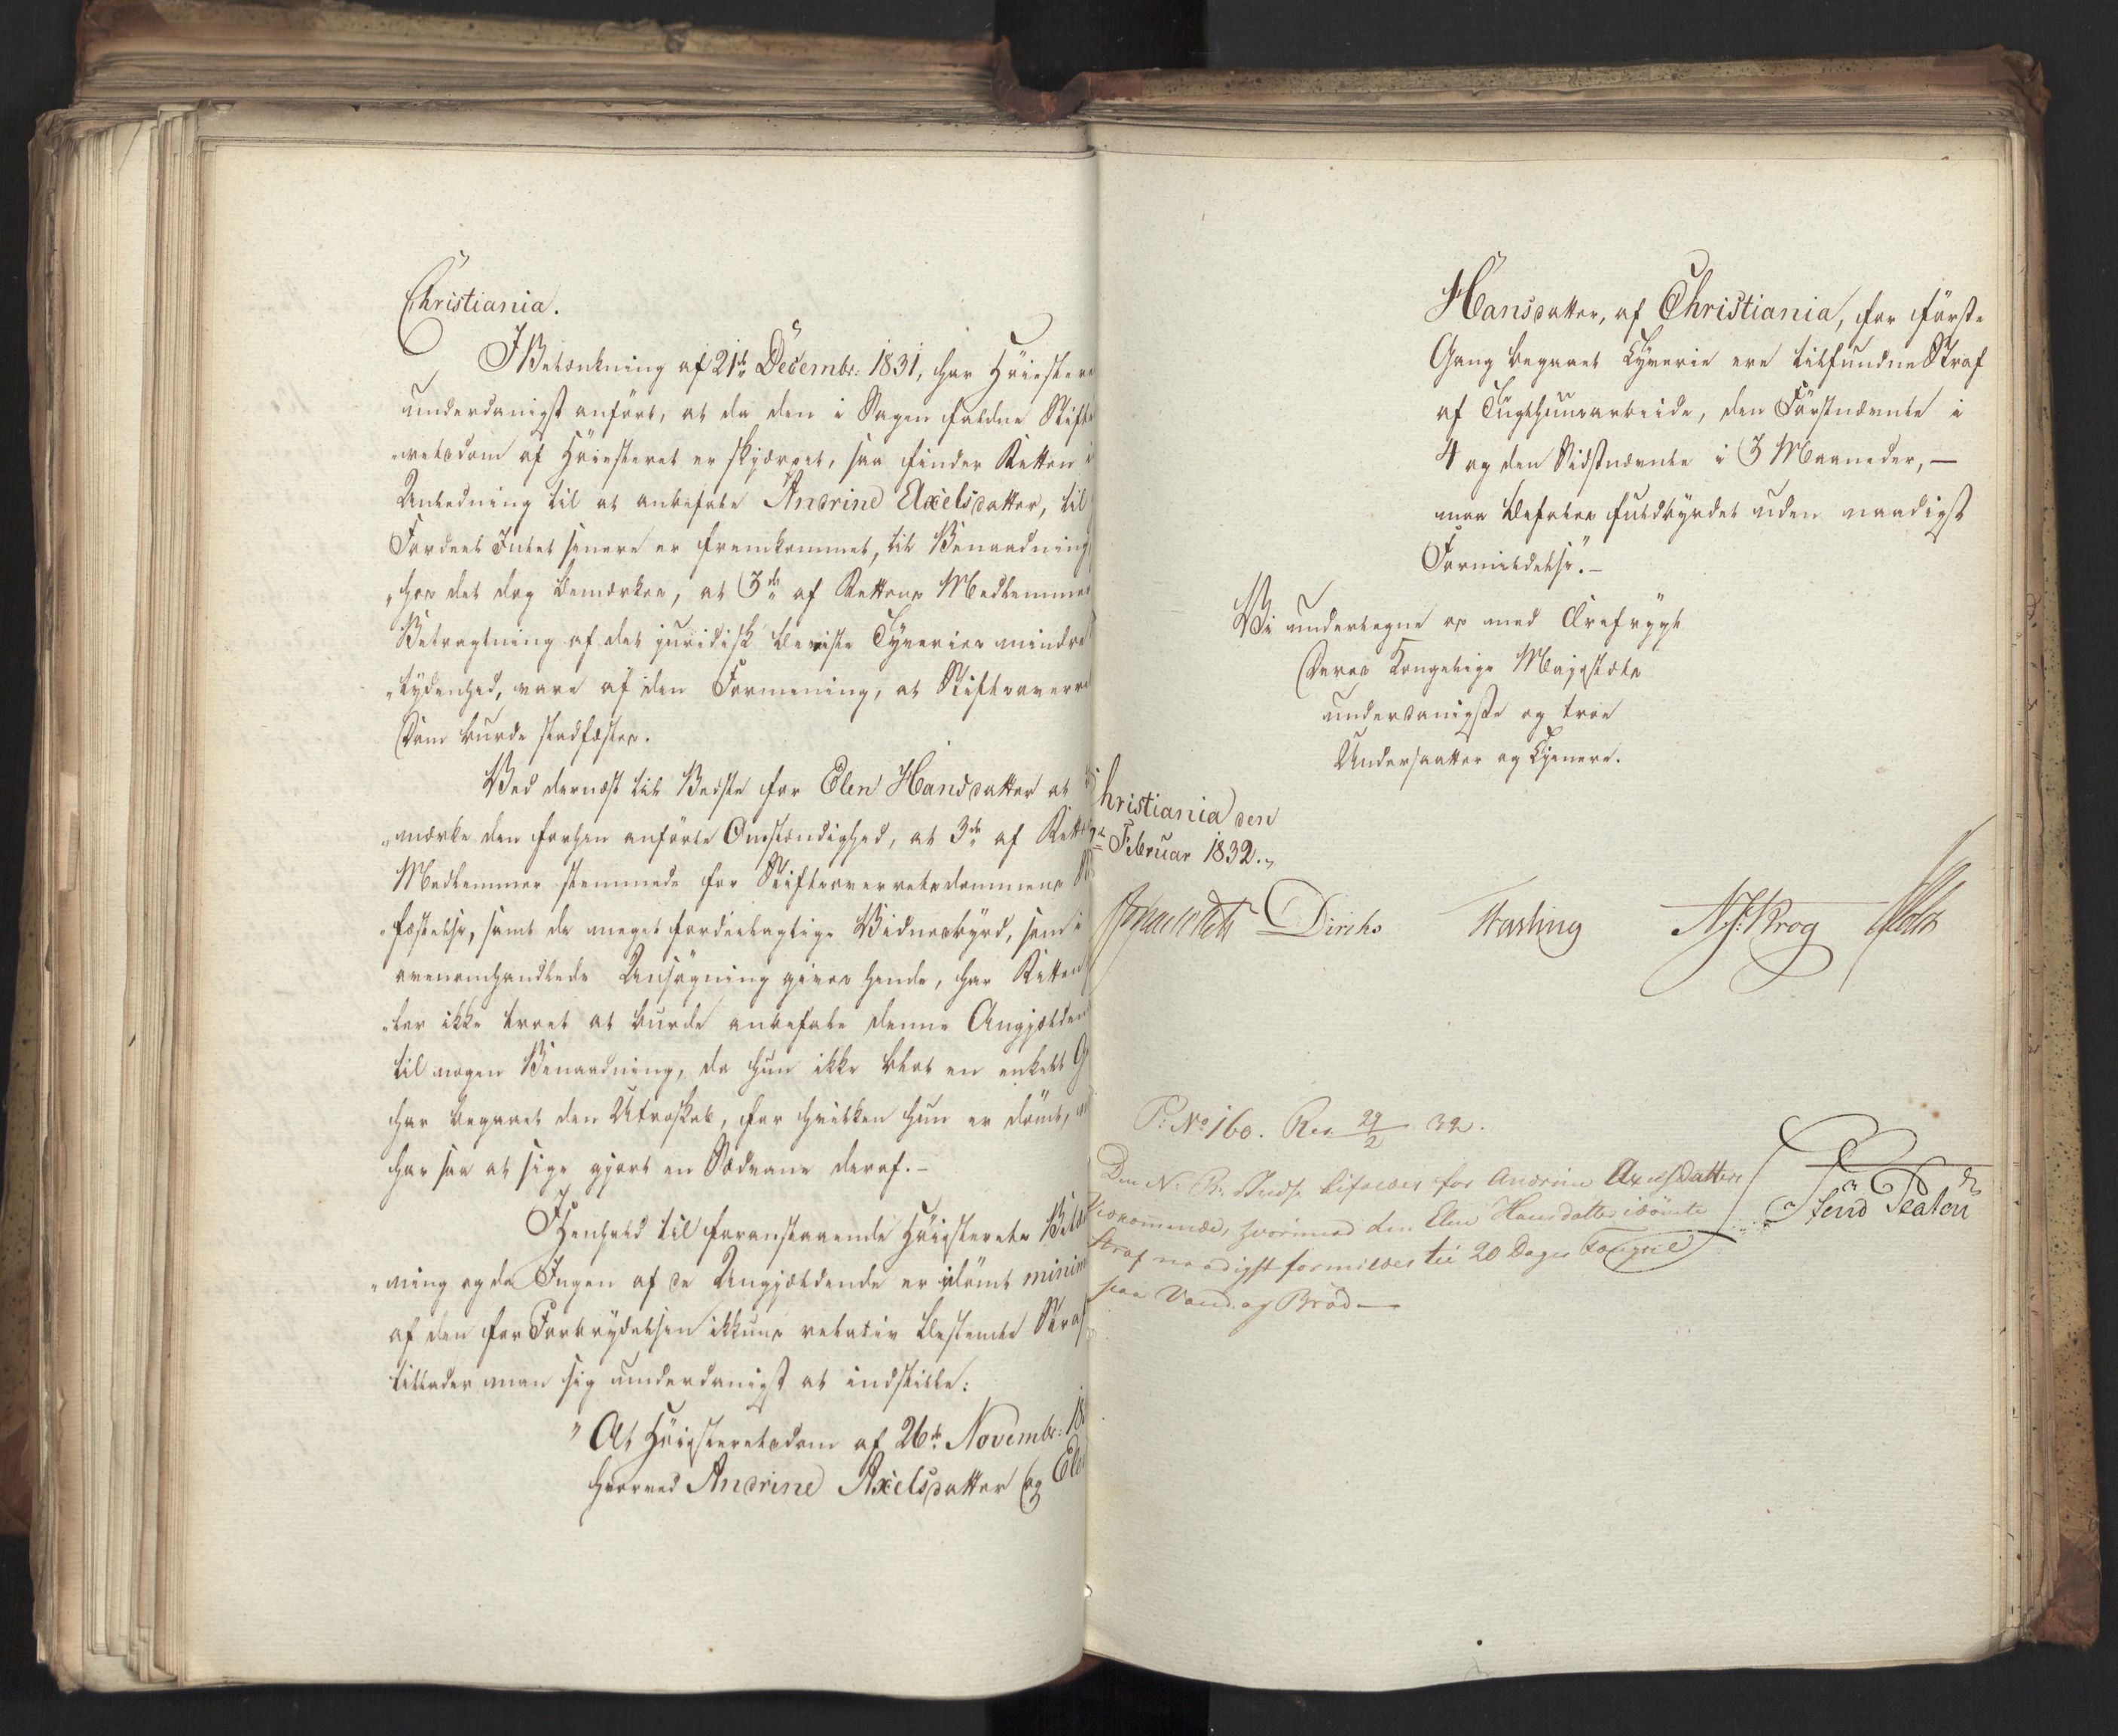 Christiania.
I Betænkning af 21de Decembr: 1831, har Höiestere
underdanigst anfört, at da den i Sagen faldne Stifts
„retsdom af Höiesteret er skjærpet, saa finder Retten i
Anledning til at anbefale Andrine Axelsdatter, til
Fordeel Intet senere er fremkommet, til Benaadning,
„hos det dog bemærkes, at 3de af Rettens Medlemmer
Betragtning af det juridisk beviste Tyveries mindre
„tydenhed, vare af den Formening, at Stiftsoverre
Dom burde stadfæstes.
Ved dernæst til Bedste for Elen Hansdatter at
„mærke den forhen anförte Omstændighed, at 3de af Rett
Medlemmer stemmede for Stiftsoverretsdommens
„fæstelse, samt de meget fordeelagtige Vidnesbyrd, som i
ovenomhandlede Ansögning gives hende, har Retten
„ler ikke troet at burde anbefale denne Angjelden
til nogen Benaadning, da hun ikke blot en enkelt G
har begaaet den Utroskab, for hvilken hun er dömt,
har saa at sige gjort en Sædvane deraf.-
I Henhold til foranstaaende Höiesterets Betæ
„ning og da Ingen af de Angjeldende er idömt minim
af den for Forbrydelsen ikkuns relativ bestemte Straf
tillader man sig underdanigst at indstille:
"At Höiesteretsdom af 26de Novembr: 18
hvorved Andrine Axelsdatter og Ele
Hansdatter, af Christiania, for förste
Gang begaaet Tyverie ere tilfundne Straf
af Tugthuusarbeide, den Förstnævnte i
4 og den Sidstnævnte i 3 Maaneder, —
maa befales fuldbyrdet uden naadigst
Formildelse".-
Vi undertegne os med Ærefrygt
Deres Kongelige Majestæts
underdanigste og troe
Undersaatter og Tjenere.
hristiania den
Februar 1832.
Diriks Fasting N. J. Krog Holst
P: No 160. Res. 29/2 32.
Den N: R: Indst. bifaldes for Andrine Axelsdatters
Vedkommende, hvorimod den Elen Hansdatter idömte
Straf naadigst formildes til 20 Dages Fængsel
paa Vand og Bröd —